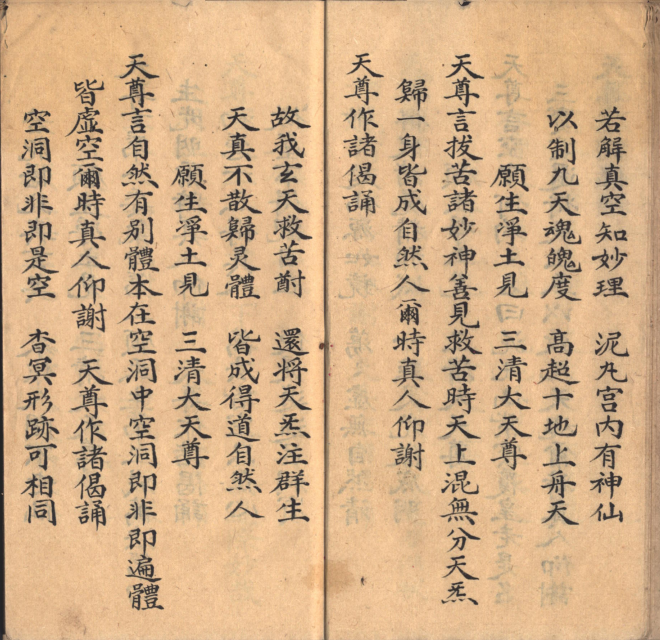 若解真空知妙理　泥丸宫内有神仙
以制九天魂魄度　髙超十地上舟天
願生淨土見　三清大天尊
天尊言拔苦諸妙神善見救苦時天上混無分天炁
歸一身皆成自然人爾時真人仰謝
天尊作諸偈誦
故我玄天救苦酎　還将天炁注群生
天真不散歸灵體　皆成得道自然人
願生淨土見　三清大天尊
天尊言自然有别體本在空洞中空洞即非即遍體
皆虚空爾時真人仰謝　天尊作諸偈誦
空洞即非即是空　杳冥形跡可相同